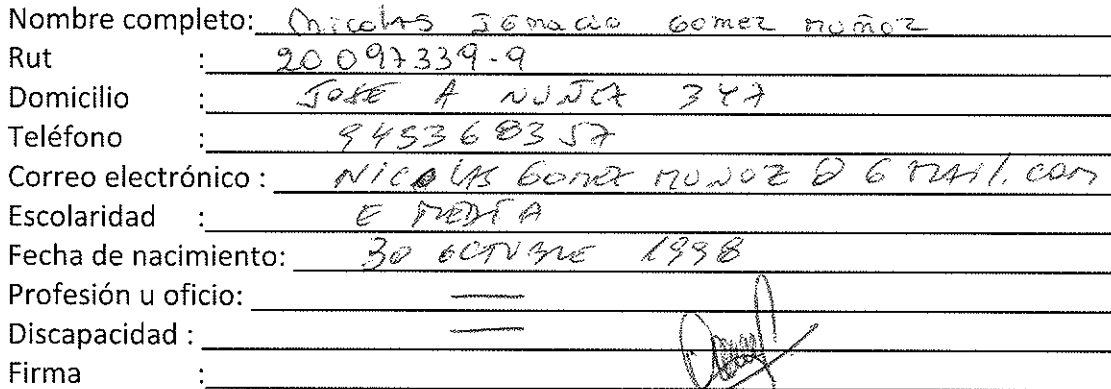 Nombre completo: Nicolas Ignacio Gomez Muñoz
Rut : 20 097339-9
Domicilio : JOSE A NUÑEZ 347
Teléfono : 945368357
Correo electrónico : NICOLAS GOMEZ MUNOZ @ GMAIl.com
Escolaridad : E MEDIA
Fecha de nacimiento: 30 OCTUBRE 1998
Profesión u oficio: —
Discapacidad : —
Firma :